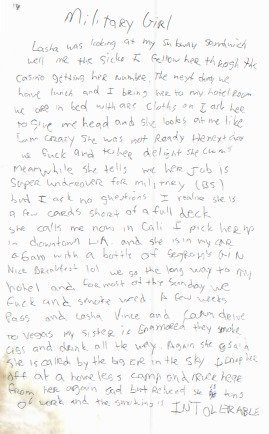 Military Girl
Lasha was looking at my subway sandwich
well me the sicko I follow her through the
casino getting her number. The next day we
have lunch and I bring her to my hotel room
we are in bed with are cloths on I ask her
to give me head and she looks at me like
I am crazy she was not Ready
we fuck and to her delight she
Meanwhile she tells me her job is
Super undercover for military (BS)
but I ask no questions I realise she is
a few cards short of a full deck
she calls me now in Cali I pick her up
in downtown L.A. and she is in my car
a 6am with a bottle of Segrams GIN
Nice Breakfast lol we go the long way to my
hotel and for most of the Sunday we
Fuck and smoke weed A few weeks
Pass and Lasha Vince and I drive
to Vegas my sister is they smoke
cigs and drink all the way. Again she
she is called by the big in the sky I drop her
off at a homeless camp and never hear
from her again
of week and the smoking is INTOLERABLE